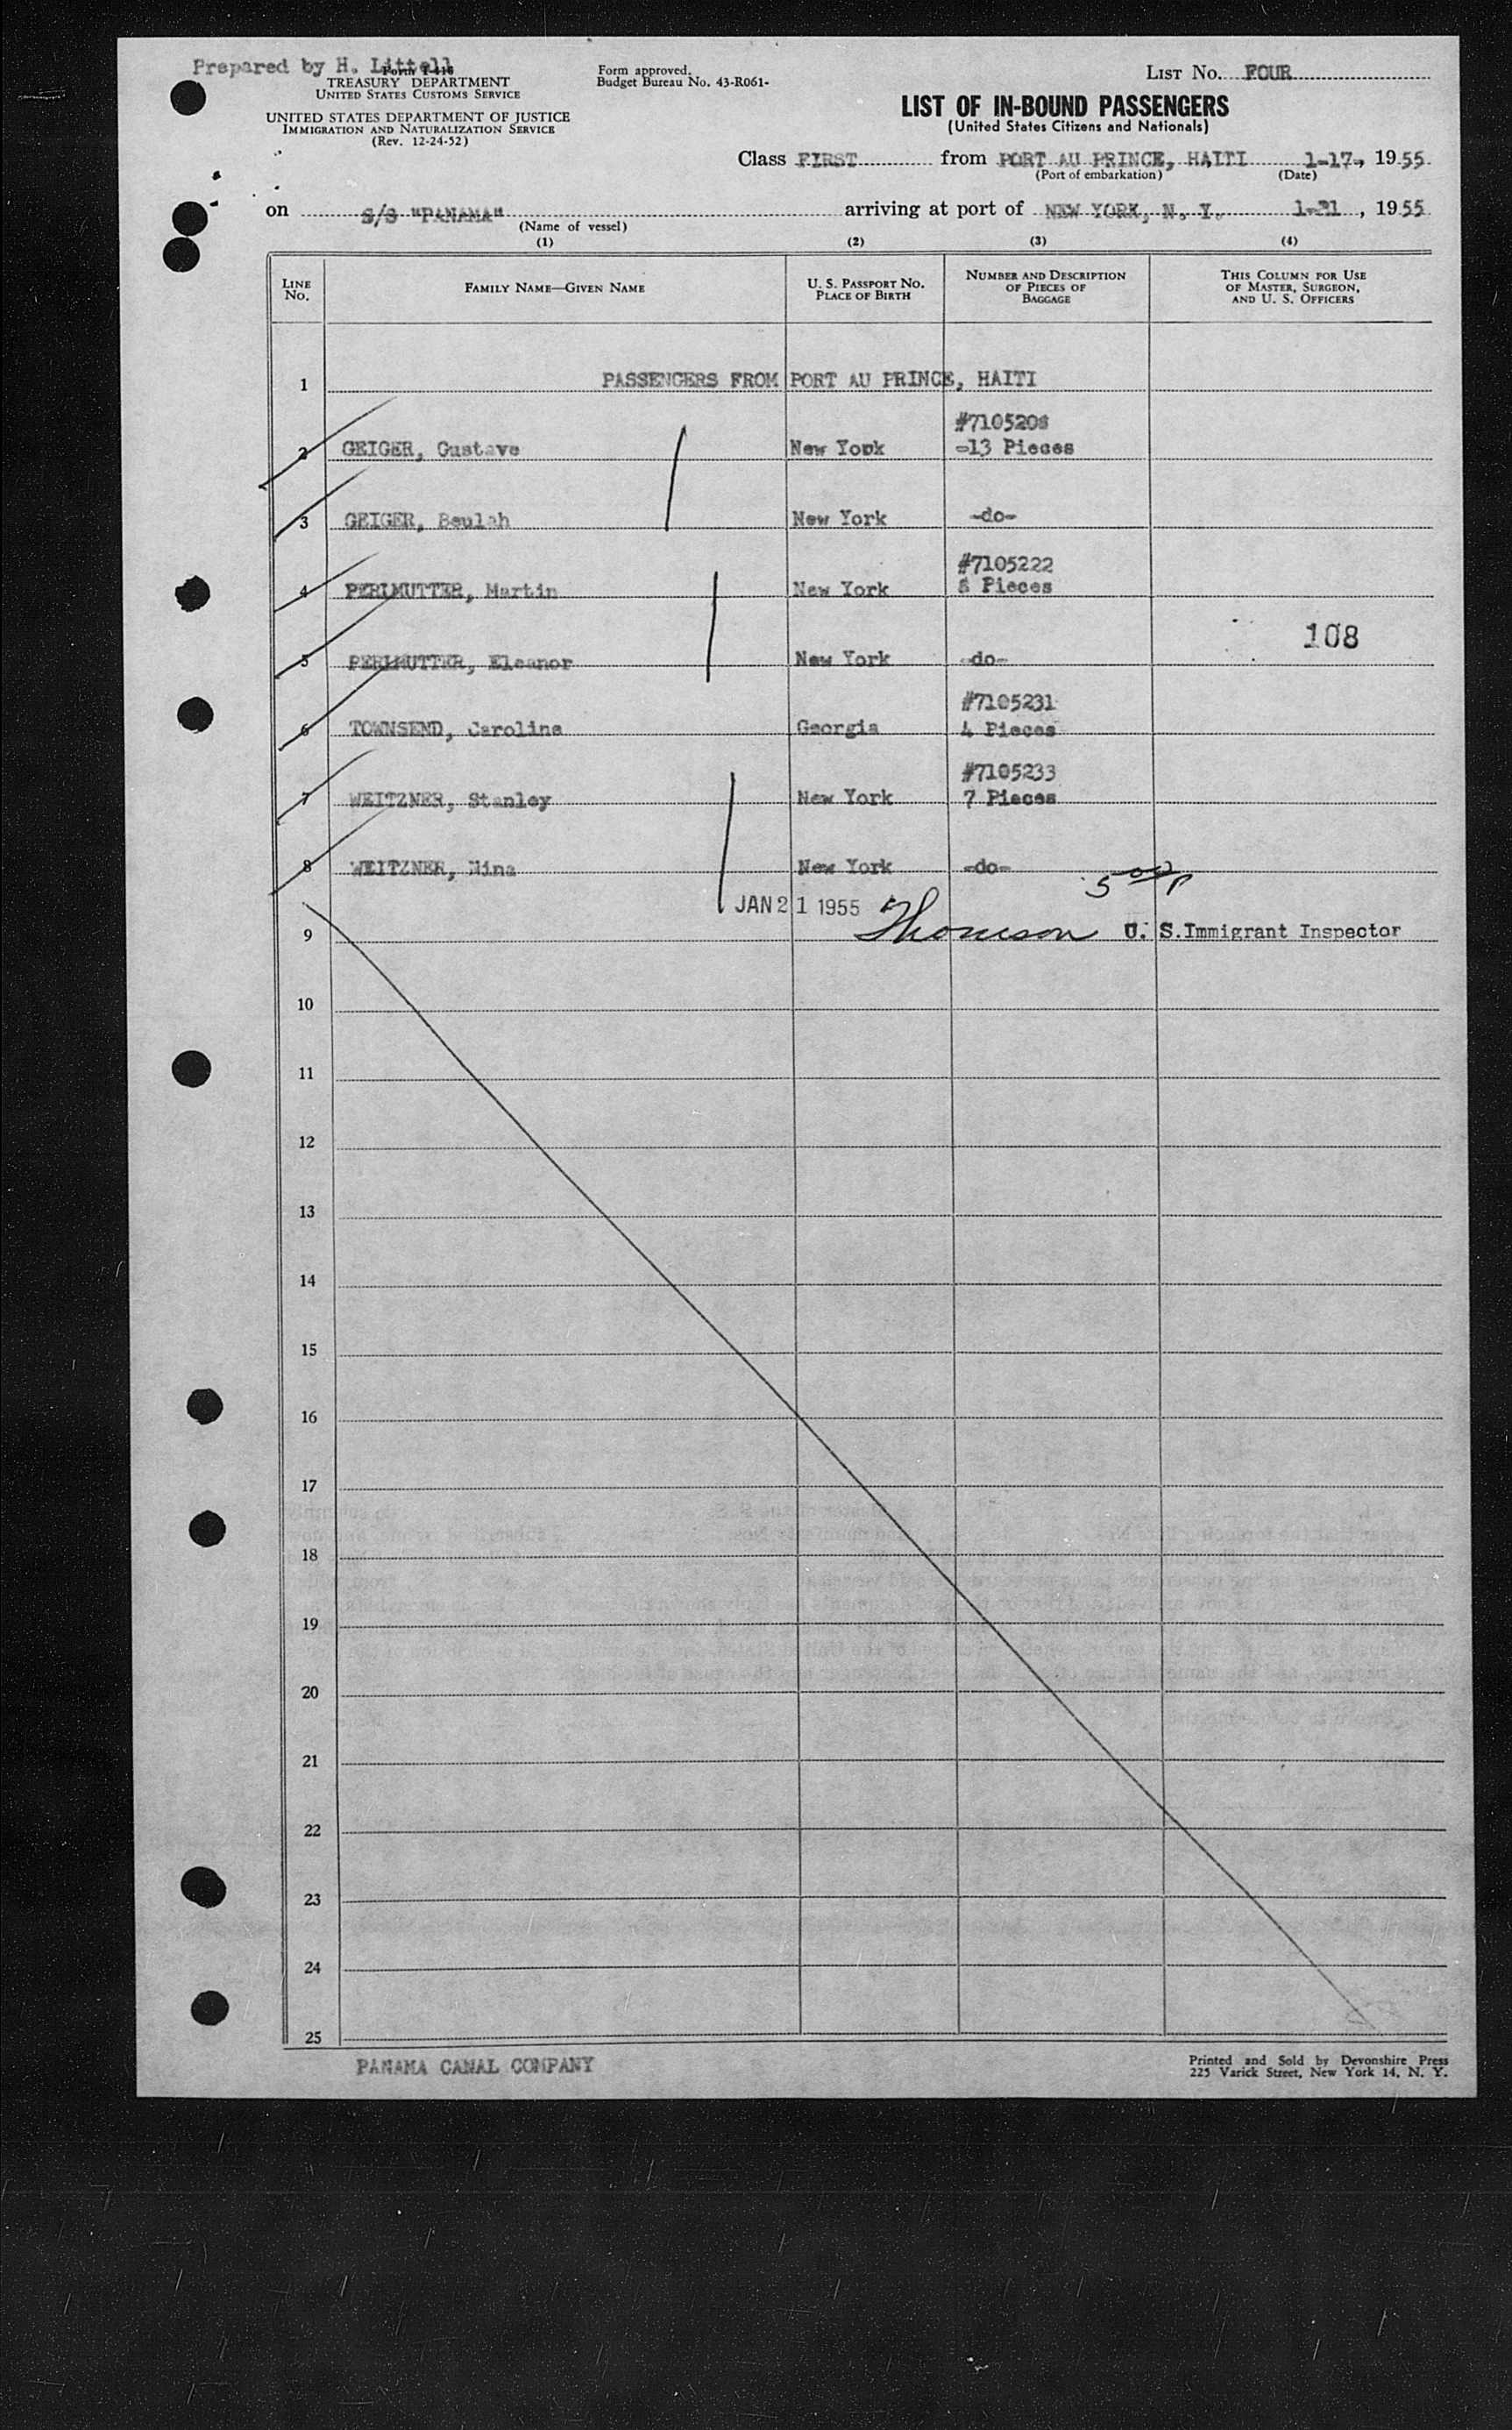 Prepared by H. Littell
Form I-416
TREASURY DEPARTMENT
UNITED STATES CUSTOMS SERVICE
UNITED STATES DEPARTMENT OF JUSTICE
IMMIGRATION AND NATURALIZATION SERVICE
(Rev. 12-24-52)
Form approved.
Budget Bureau No. 43-R061-
LIST No. FOUR
LIST OF IN-BOUND PASSENGERS
(United States Citizens and Nationals)
Class FIRST from PORT AU PRINCE, HAITI 1-17-, 1955
(Port of embarkation) (Date)
on S/S "PANAMA" arriving at port of NEW YORK, N. Y. 1-21, 1955
(Name of vessel)
(1) (2) (3) (4)
LINE No. FAMILY NAME—GIVEN NAME U. S. PASSPORT No. PLACE OF BIRTH NUMBER AND DESCRIPTION OF PIECES OF BAGGAGE THIS COLUMN FOR USE OF MASTER, SURGEON, AND U. S. OFFICERS
1 PASSENGERS FROM PORT AU PRINCE, HAITI
#7105208
2 GEIGER, Gustave New York -13 Pieces
3 GEIGER, Beulah New York -do-
#7105222
4 PERLMUTTER, Martin New York 8 Pieces
108
5 PERLMUTTER, Eleanor New York -do-
#7105231
6 TOWNSEND, Caroline Georgia 4 Pieces
#7105233
7 WEITZNER, Stanley New York 7 Pieces
8 WEITZNER, Nina New York -do-
JAN 21 1955
9 Thomson U. S. Immigrant Inspector
10
11
12
13
14
15
16
17
18
19
20
21
22
23
24
25
PANAMA CANAL COMPANY
Printed and Sold by Devonshire Press
225 Varick Street, New York 14, N. Y.